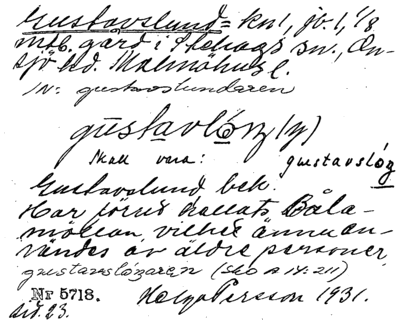 Gustavslund = kn 1, jb. 1, 1/8
mtl. gård i Stehags sn., On-
sjö hd. Malmöhus l.
IN: gustavslundaren
gustavlónz (y)
skall vara: gustavslóz
Gustavslund bek.
Har förut kallats Båla-
möllan vilket ännu an-
vändes av äldre personer.
gustavslózaren (SLO A 14: 211)
Nr 5718. Helge Persson 1931.
sid. 23.